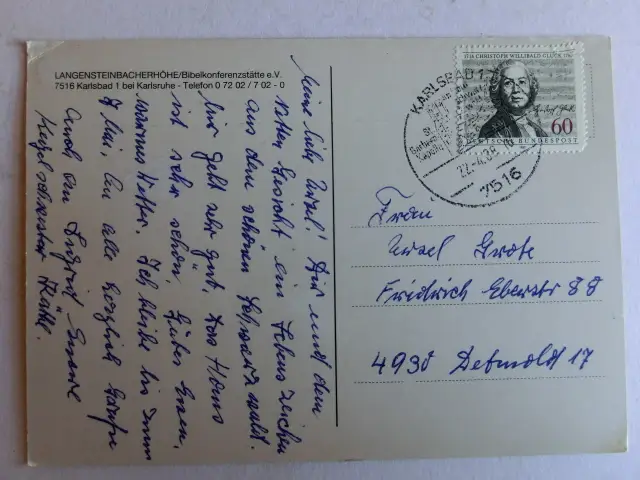 LANGENSTEINBACHERHÖHE/Bibelkonferenzstätte e.V.
7516 Karlsbad 1 bei Karlsruhe - Telefon 0 72 02 / 7 02 - 0
Meine liebe Ursel! Dir und dem
ein Lebenszeichen
aus dem schönen Schwarzwald.
Mir geht sehr gut, das Haus
ist sehr schön, gutes Essen,
warmes Wetter. Ich bleibe bis zum
7 Mai, Euch alle herzlich Grüße
auch an Ingrid
CHRISTOPH WILLIBALD GLUCK
60
DEUTSCHE BUNDESPOST
KARLSBAD 1
22.-4.88
7516
Frau
Ursel Grote
Friedrich Ebertstr 88
4930 Detmold 17